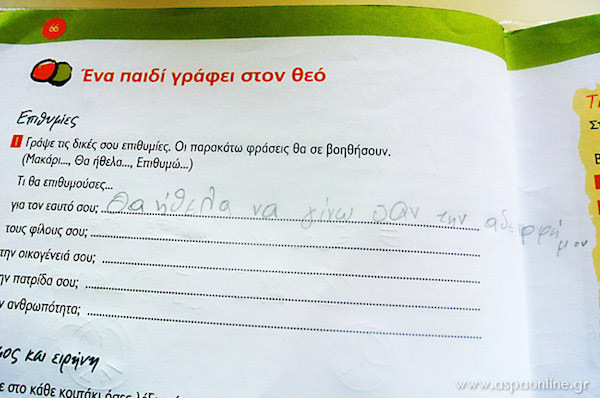 66
Ένα παιδί γράφει στον θεό
Επιθυμίες
1 Γράψε τις δικές σου επιθυμίες. Οι παρακάτω φράσεις θα σε βοηθήσουν.
(Μακάρι..., Θα ήθελα..., Επιθυμώ...)
Τι θα επιθυμούσες...
για τον εαυτό σου; Θα ήθελα να γίνω σαν την αδερφή
μου
τους φίλους σου;
την οικογένειά σου;
ην πατρίδα σου;
ν ανθρωπότητα;
μος και ειρήνη
ε στο κάθε κουτάκι όσες λέξεις
Τ
Στ
Β
www.aspaonline.gr